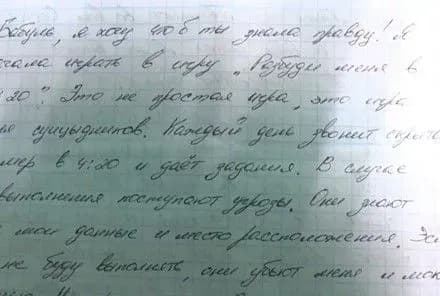 Бабуль, я хочу чтоб ты знала правду! Я
начала играть в игру „Разбуди меня в
4:20". Это не простая игра, это игра
для суицыдников. Каждый день звонит скрыты
омер в 4:20 и даёт задания. В случае
выполнения поступают угрозы. Они знают
мои данные и место рассположения. Есл
не буду выполнять, они убьют меня и мою